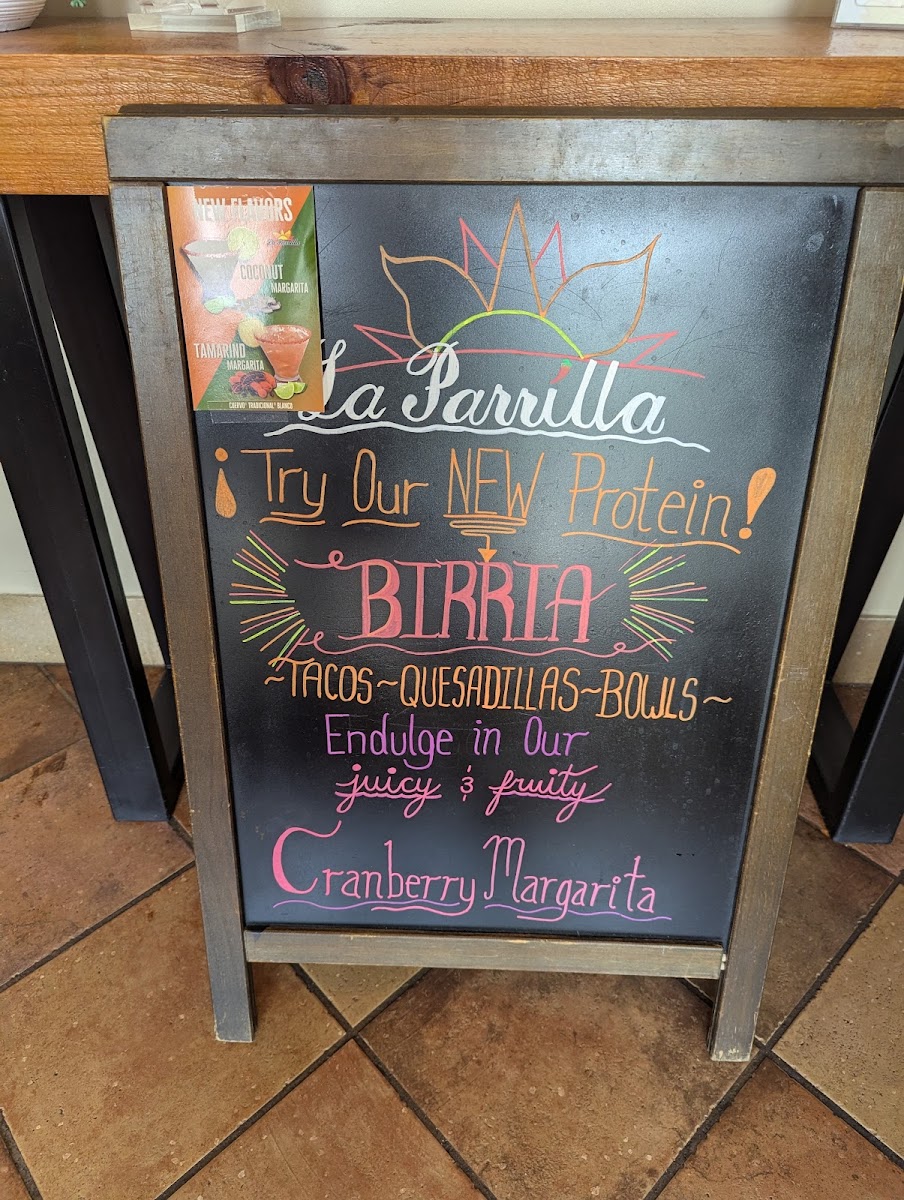 NEW FLAVORS
COCONUT
MARGARITA
TAMARIND
MARGARITA
CUERVO® TRADICIONAL® BLANCO
La Parrilla
¡Try Our NEW Protein!
BIRRIA
~TACOS~QUESADILLAS~BOWLS~
Endulge in Our
juicy & fruity
Cranberry Margarita